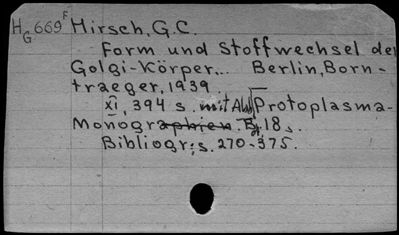 HG669F Hirsch, G.C.
Form und Stoffwechsel der
Golgi-Körper... Berlin, Born-
traeger, 1939.
XI, 394 s. mit Abb Protoplasma-
Monographien. Bd. 18 s.
Bibliogr.: s. 270-375.